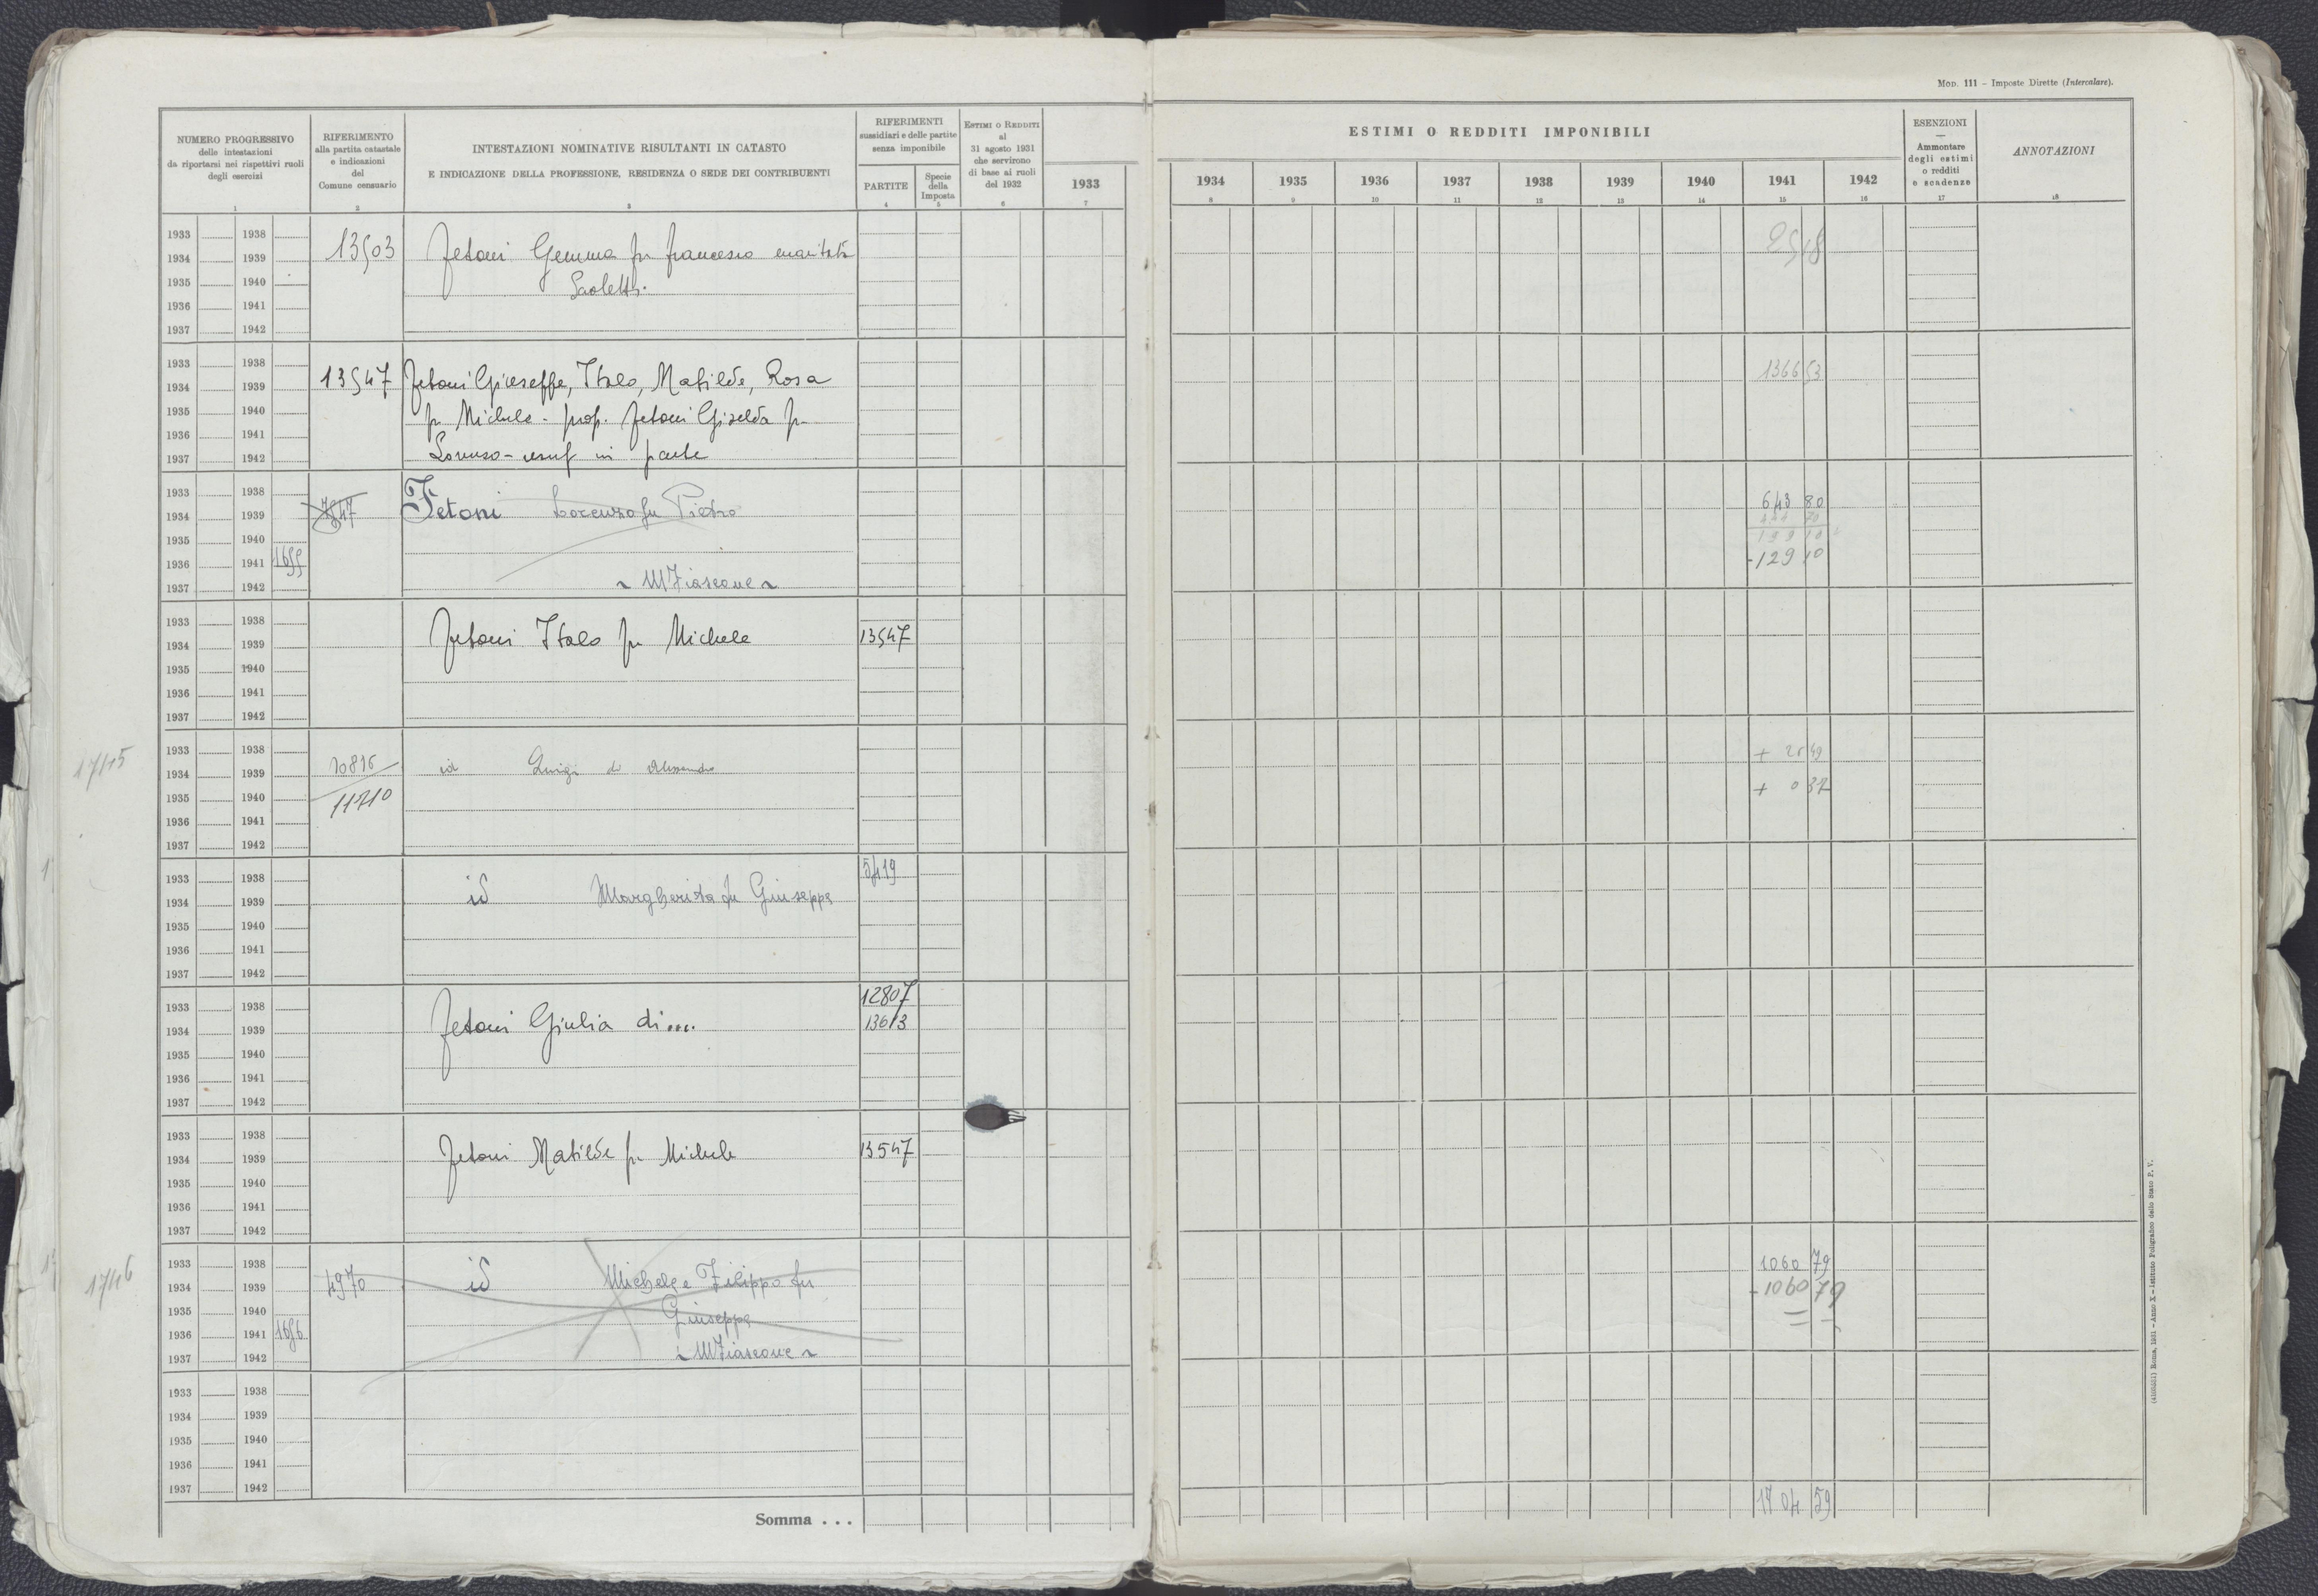 MOD. 111 – Imposte Dirette (Intercalare).
NUMERO PROGRESSIVO
delle intestazioni
da riportarsi nei rispettivi ruoli
degli esercizi
1
RIFERIMENTO
alla partita catastale
e indicazioni
del
Comune censuario
2
INTESTAZIONI NOMINATIVE RISULTANTI IN CATASTO
E INDICAZIONE DELLA PROFESSIONE, RESIDENZA O SEDE DEI CONTRIBUENTI
3
RIFERIMENTI
sussidiari e delle partite
senza imponibile
PARTITE
4
Specie
della
Imposta
5
ESTIMI O REDDITI
al
31 agosto 1931
che servirono
di base ai ruoli
del 1932
6
1933
7
ESTIMI O REDDITI IMPONIBILI
1934 1935 1936 1937 1938 1939 1940 1941 1942
8 9 10 11 12 13 14 15 16
ESENZIONI
—
Ammontare
degli estimi
o redditi
e scadenze
17
ANNOTAZIONI
18
1933 1938
1934 1939 13503 Fetoni Gemma fu Francesco maritata 25 18
1935 1940 Paoletti.
1936 1941
1937 1942
1933 1938
1934 1939 13547 Fetoni Giuseppe, Italo, Matilde, Rosa 1366 53
1935 1940 fu Michele - prop. Fetoni Giselda fu
1936 1941
1937 1942 Lorenzo - usuf in parte
1933 1938 643 80
1934 1939 Fetoni Lorenzo fu Pietro
1935 1940
1936 1941 1655 -129 10
1937 1942 ~ MFiascone ~
1933 1938
1934 1939 Fetoni Italo fu Michele 13547
1935 1940
1936 1941
1937 1942
1933 1938
17115 1934 1939 10816 id Luigi di Alessandro
1935 1940 11710 + 0 37
1936 1941
1937 1942
1933 1938 5419
1934 1939 id Margherita fu Giuseppe
1935 1940
1936 1941
1937 1942
1933 1938 12807
1934 1939 Fetoni Giulia di.... 13613
1935 1940
1936 1941
1937 1942
1933 1938
1934 1939 Fetoni Matilde fu Michele 13547
1935 1940
1936 1941
1937 1942
1933 1938 1060 79
17116 1934 1939 4970 id Michele e Filippo fu -1060 79
1935 1940 Giuseppe
1936 1941 1656
1937 1942 ~ MFiascone ~
1933 1938
1934 1939
1935 1940
1936 1941
1937 1942
Somma . . . 1704 59
(4105551) Roma, 1931 – Anno X – Istituto Poligrafico dello Stato P. V.